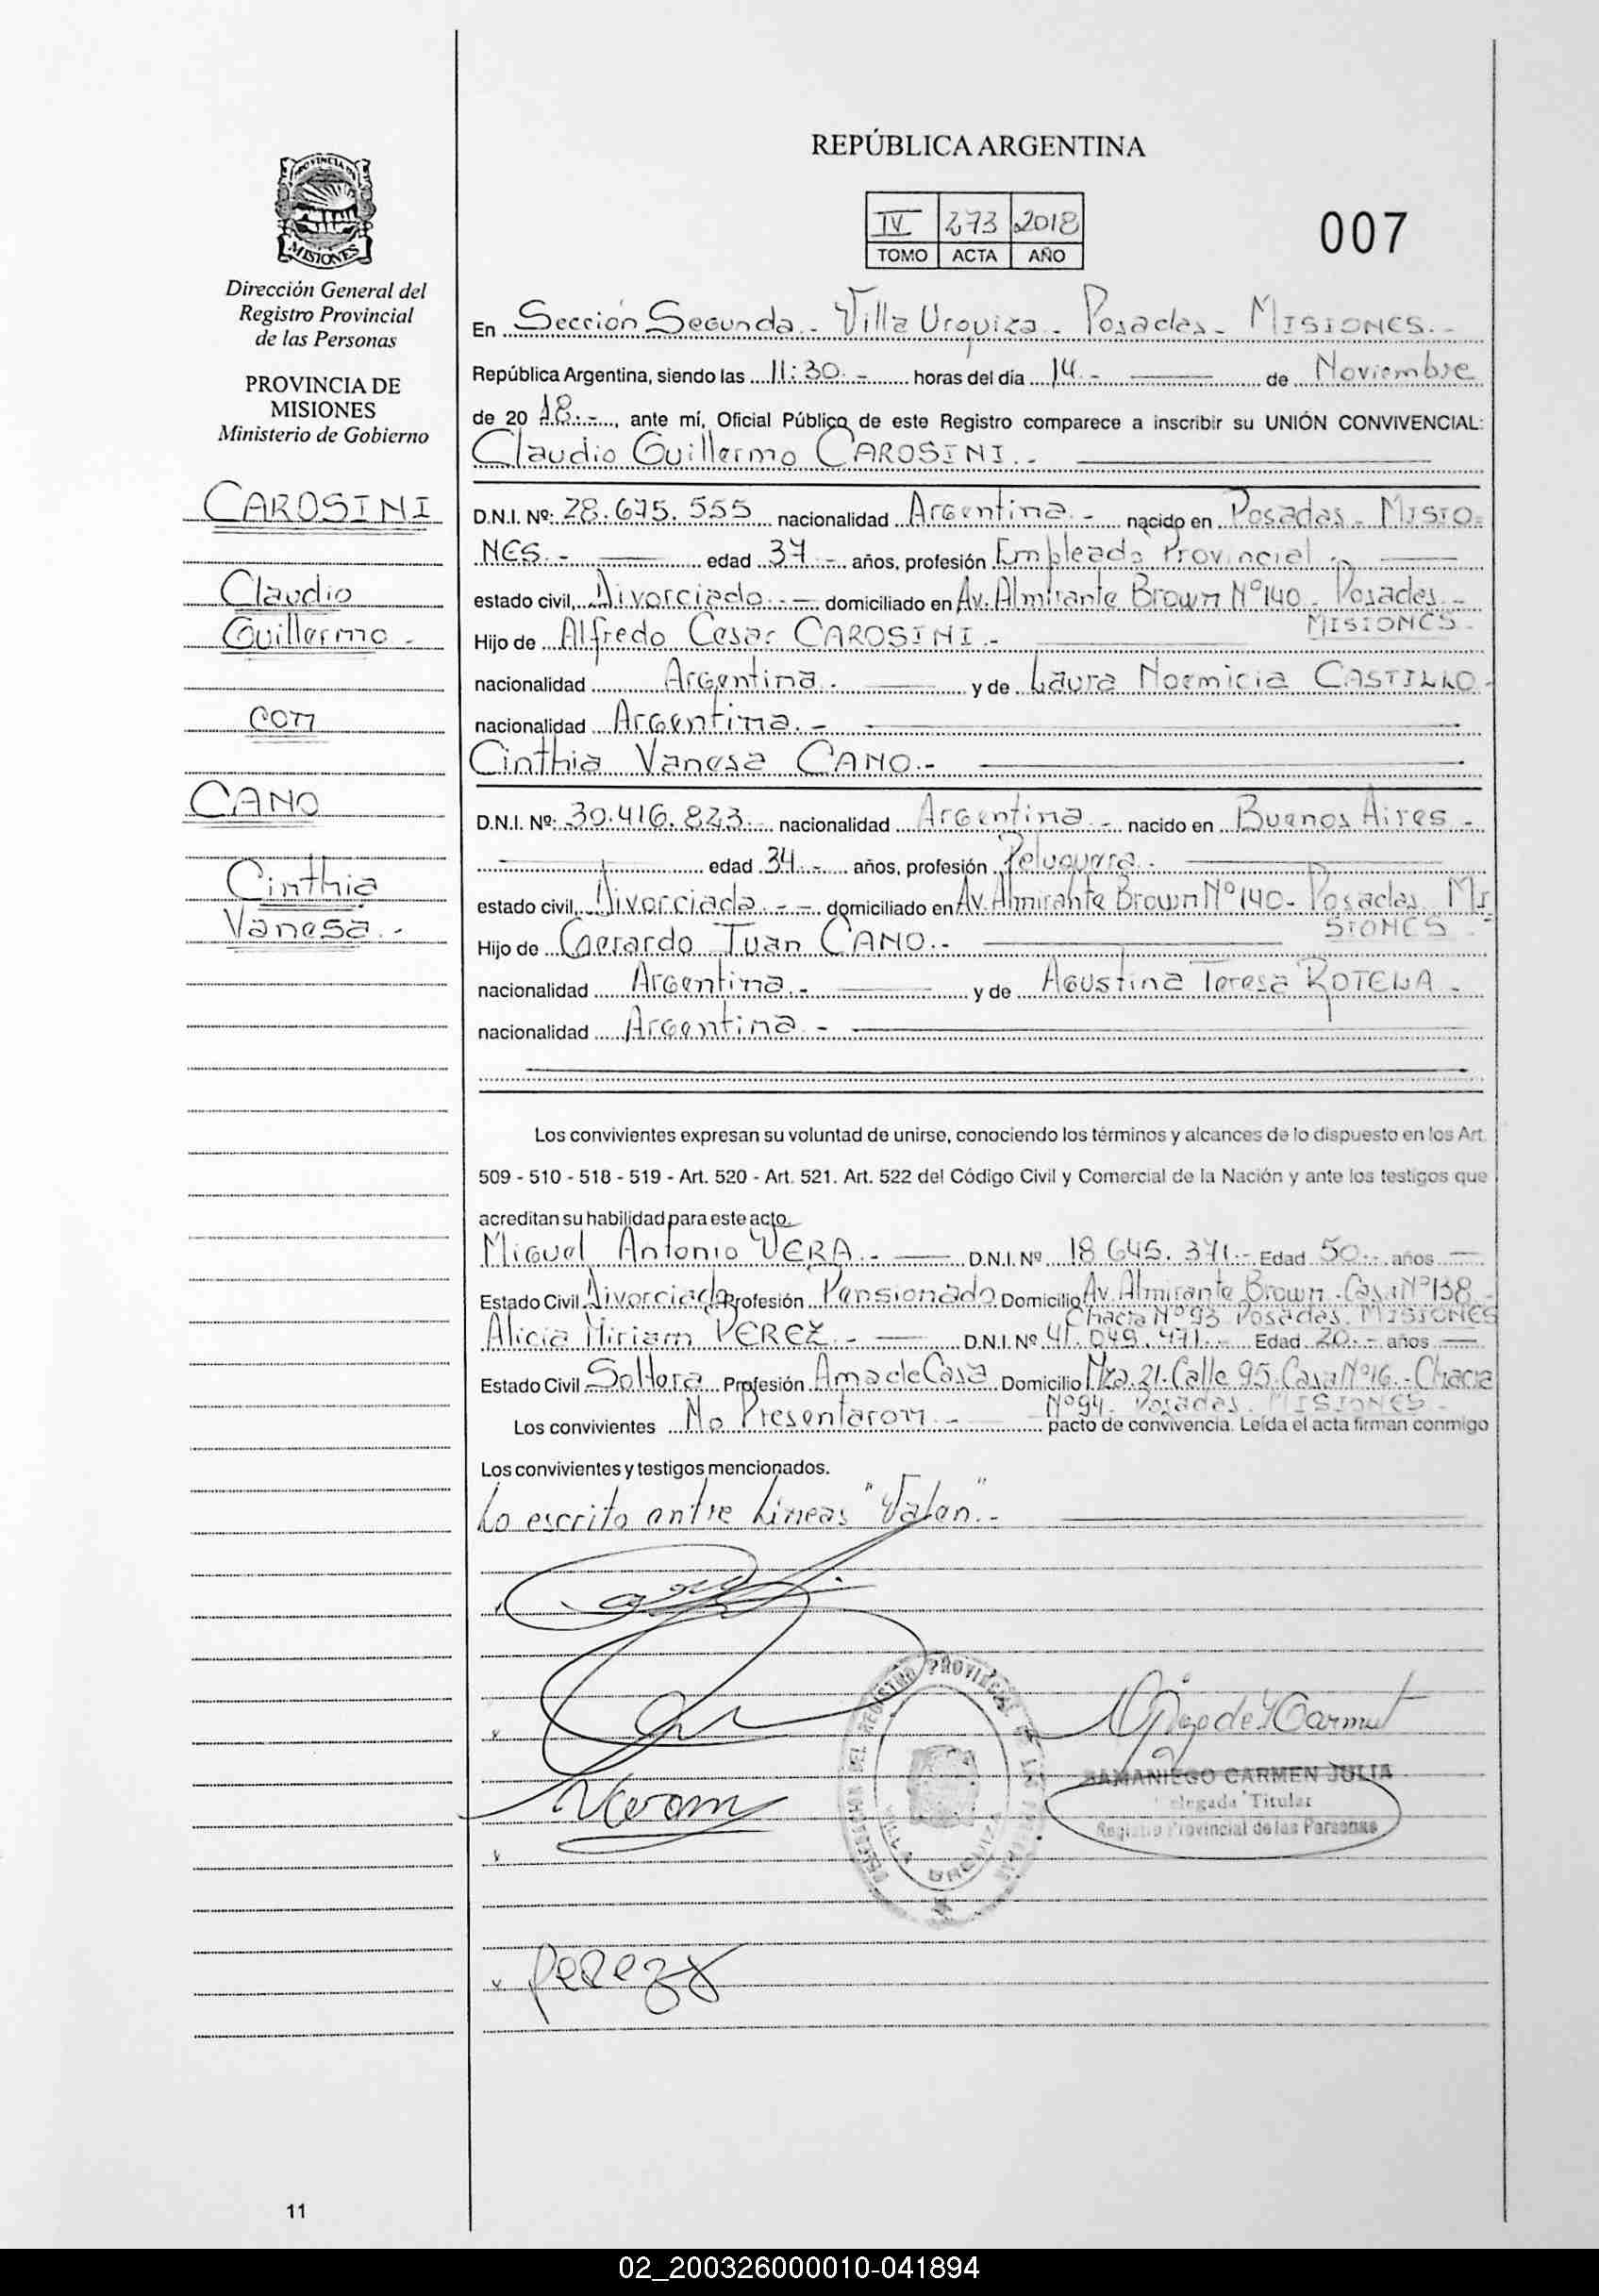 REPÚBLICA ARGENTINA
IV 273 2018
TOMO ACTA AÑO
007
PROVINCIA DE
MISIONES
Dirección General del
Registro Provincial
de las Personas
PROVINCIA DE
MISIONES
Ministerio de Gobierno
CAROSINI
Claudio
Guillermo -
con
CANO
Cinthia
Vanesa.-
En Sección Segunda.- Villa Urquiza - Posadas - MISIONES.-
República Argentina, siendo las 11:30.- horas del día 14.- de Noviembre
de 20 18.-, ante mí, Oficial Público de este Registro comparece a inscribir su UNIÓN CONVIVENCIAL:
Claudio Guillermo CAROSINI.-
D.N.I. Nº: 28.675.555 nacionalidad Argentina.- nacido en Posadas - MISIO-
NES.- edad 37.- años, profesión Empleado Provincial.-
estado civil, Divorciado.- domiciliado en Av. Almirante Brown Nº140 - Posadas -
MISIONES -
Hijo de Alfredo Cesar CAROSINI.-
nacionalidad Argentina.- y de Laura Noemicia CASTILLO-
nacionalidad Argentina.-
Cinthia Vanesa CANO.-
D.N.I. Nº: 30.416.823.- nacionalidad Argentina.- nacido en Buenos Aires -
edad 34.- años, profesión Peluquera.-
estado civil, Divorciada.-- domiciliado en Av. Almirante Brown Nº140- Posadas MI
SIONES -
Hijo de Gerardo Juan CANO.-
nacionalidad Argentina.- y de Agustina Teresa ROTELA -
nacionalidad Argentina.-
Los convivientes expresan su voluntad de unirse, conociendo los términos y alcances de lo dispuesto en los Art.
509 - 510 - 518 - 519 - Art. 520 - Art. 521. Art. 522 del Código Civil y Comercial de la Nación y ante los testigos que
acreditan su habilidad para este acto.
Miguel Antonio VERA.- D.N.I. Nº 18.645.371.- Edad 50.- años
Estado Civil Divorciado Profesión Pensionado Domicilio Av. Almirante Brown - Casa Nº138 -
Chacra Nº93 Posadas. MISIONES
Alicia Miriam PEREZ.- D.N.I. Nº 41.049.471.- Edad 20.- años
Estado Civil Soltera Profesión Ama de Casa Domicilio Mza.21. Calle 95. Casa Nº16.- Chacra
Nº94. Posadas. MISIONES -
Los convivientes No Presentaron.- pacto de convivencia. Leída el acta firman conmigo
Los convivientes y testigos mencionados.
Lo escrito entre Líneas "Valen".-
SAMANIEGO CARMEN JULIA
Delegada Titular
Registro Provincial de las Personas
VILLA URQUIZA
Perez
11
02_200326000010-041894